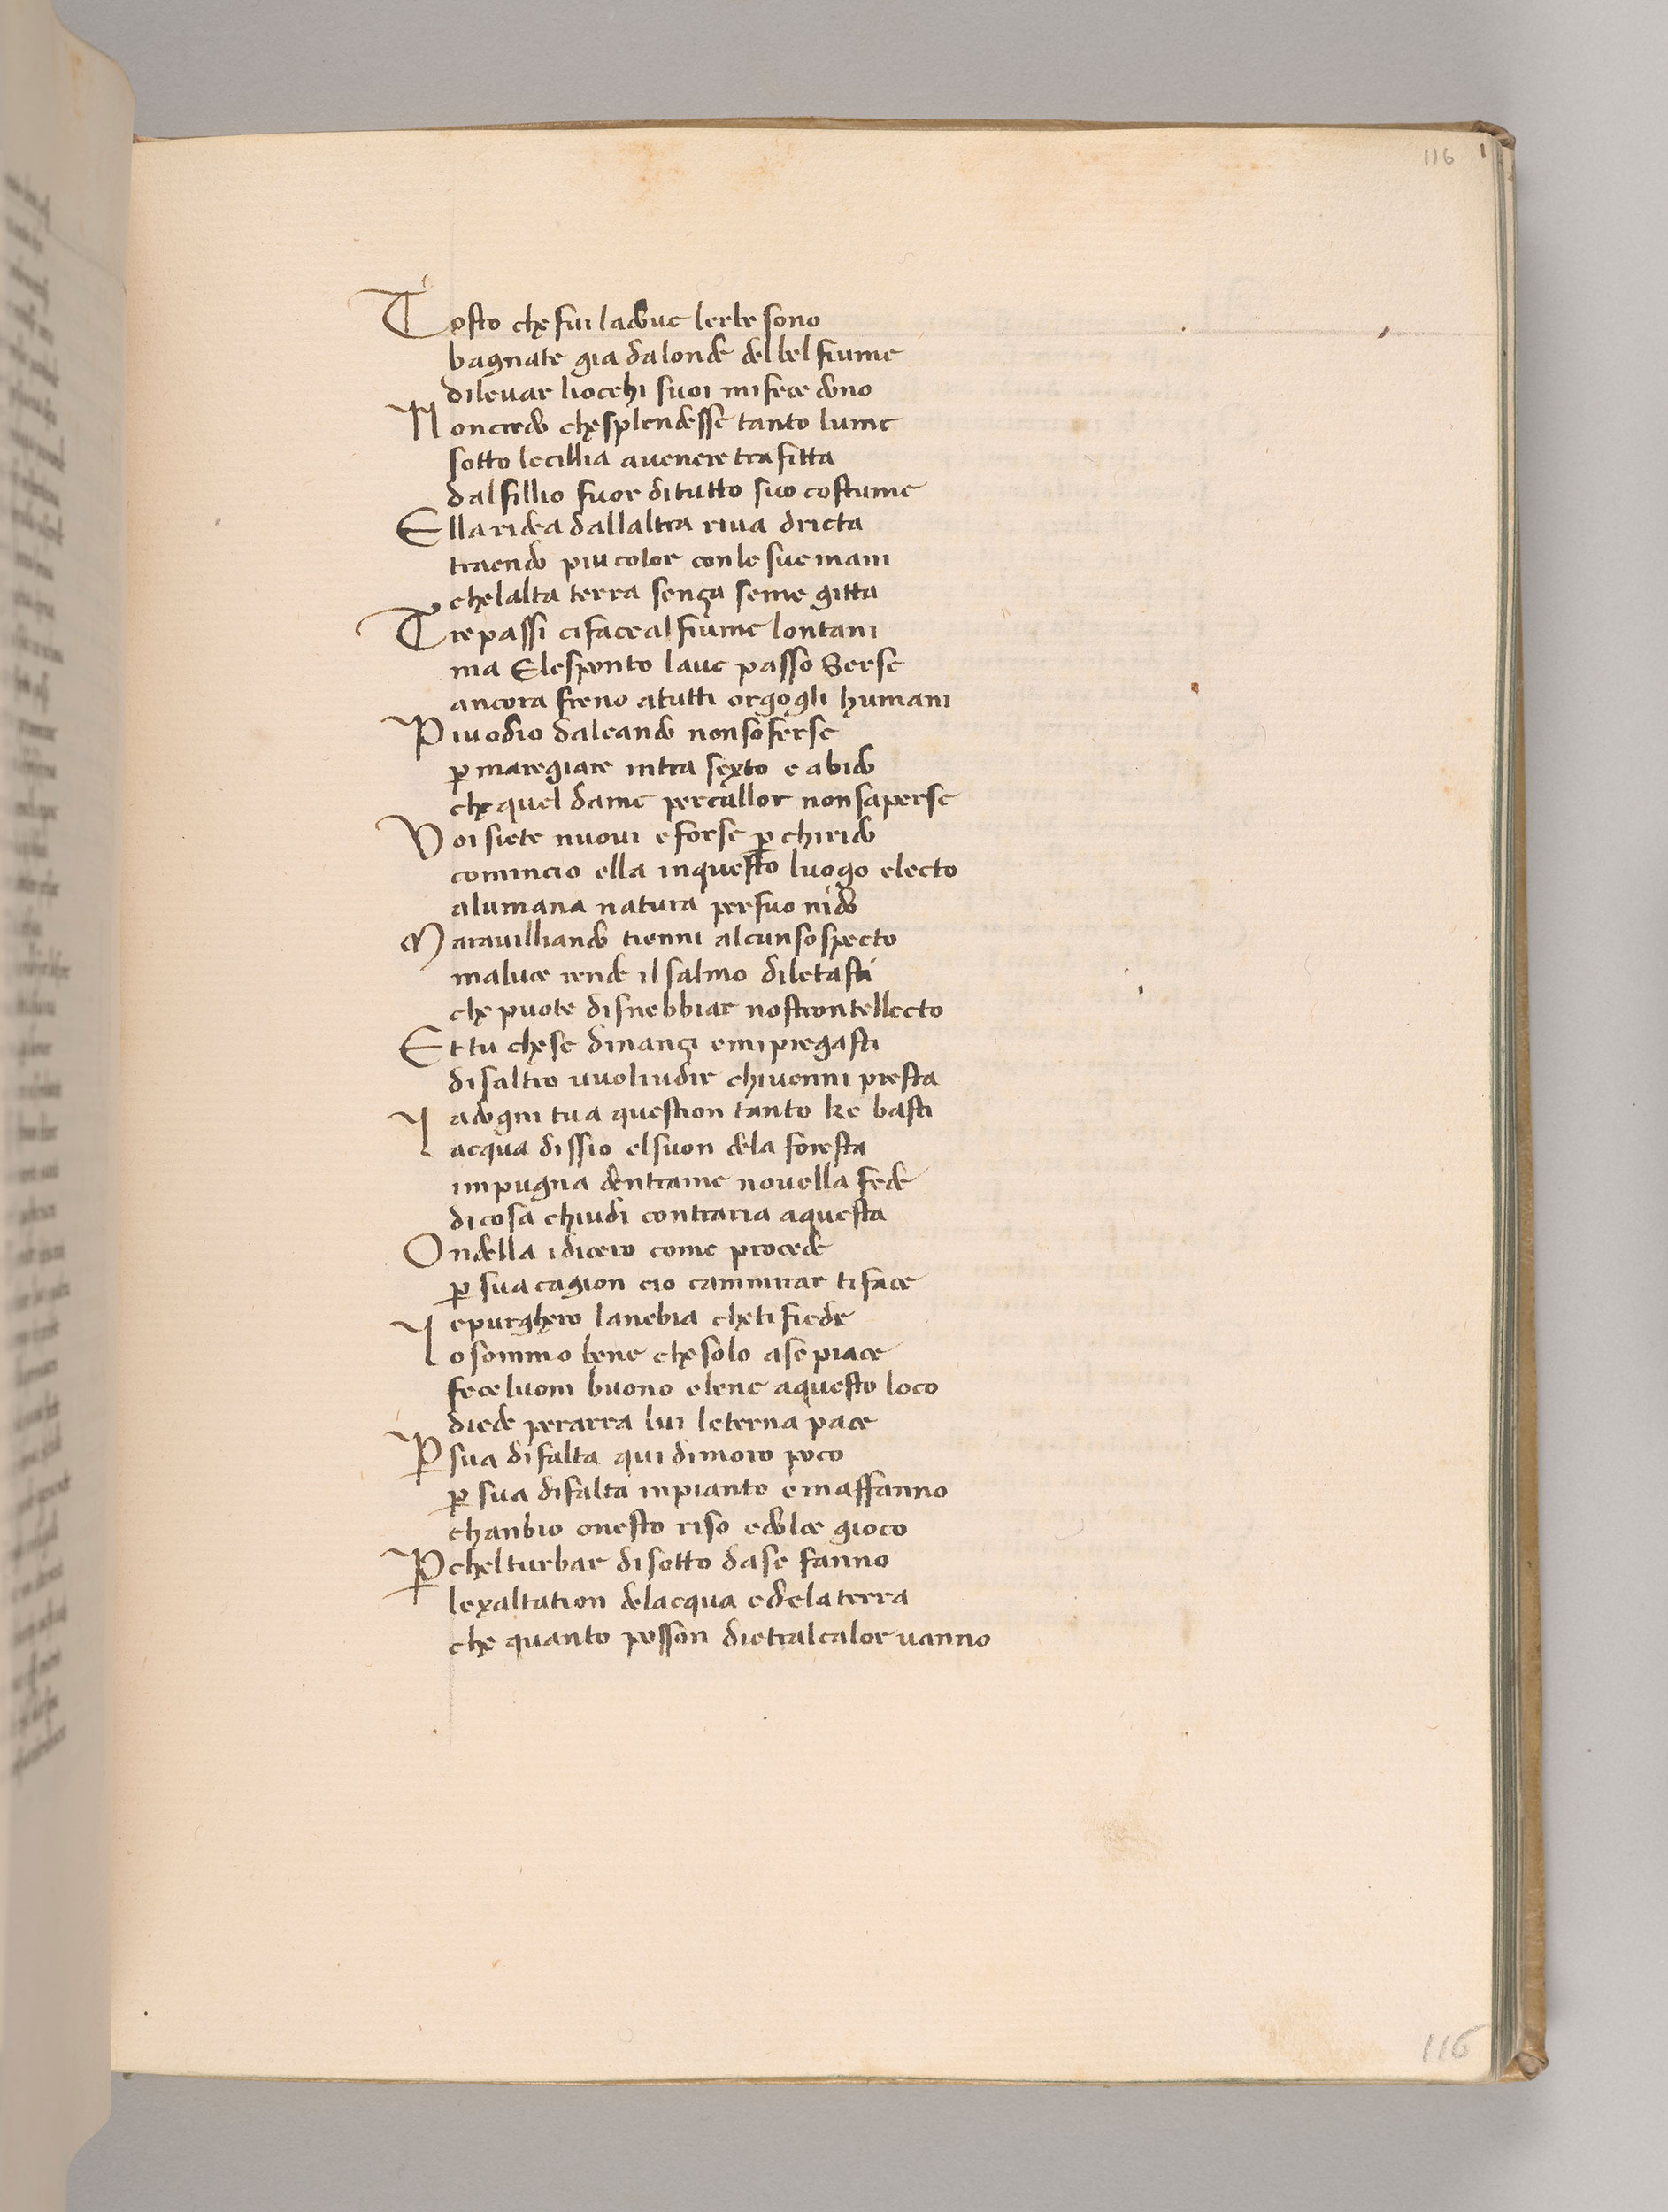 116
Tosto che fui ladoue lerbe sono
bagnate gia dalonde del bel fiume
dileuar liocchi suoi mi fece dono
Non credo che splendesse tanto lume
sotto lecillia auenere trafitta
dal fillio fuor ditutto suo costume
Ella ridea dallaltra riua dricta
traendo piu color conle sue mani
chelalta terra sença seme gitta
Tre passi ci facea lfiume lontani
ma Elesponto laue passo Serse
ancora freno atutti orgogli humani
Piu odio daleandro non soferse
ꝑ maregiare intra sexto e abido
che quel dame percallor non saperse
Voi siete nuoui e forse ꝑ chirido
comincio ella inquesto luogo electo
alumana natura persuo nido
Marauilliando tienni alcun sospecto
maluce rende il salmo diletasti
che puote disnebbiar nostrontellecto
Et tu chese dinançi emipregasti
disaltro uuoliudir chiuenni presta
adogni tua question tanto ke basti
Iacqua dissio elsuon dela foresta
impugna dentrame nouella fede
dicosa chiudi contraria aquesta
Ondella idicero come procede
ꝑ sua cagion cio cammirar ti face
epurghero lanebia cheti fiede
Io sommo bene che solo ase piace
fece luom buono elene aquesto loco
diede perarra lui leterna pace
Ꝑ sua difalta qui dimoro poco
ꝑ sua difalta inpianto emaffanno
chanbio onesto riso edolce gioco
Ꝑ chelturbar disotto dase fanno
lexaltation delacqua edelaterra
che quanto posson dietralcalor uanno
116